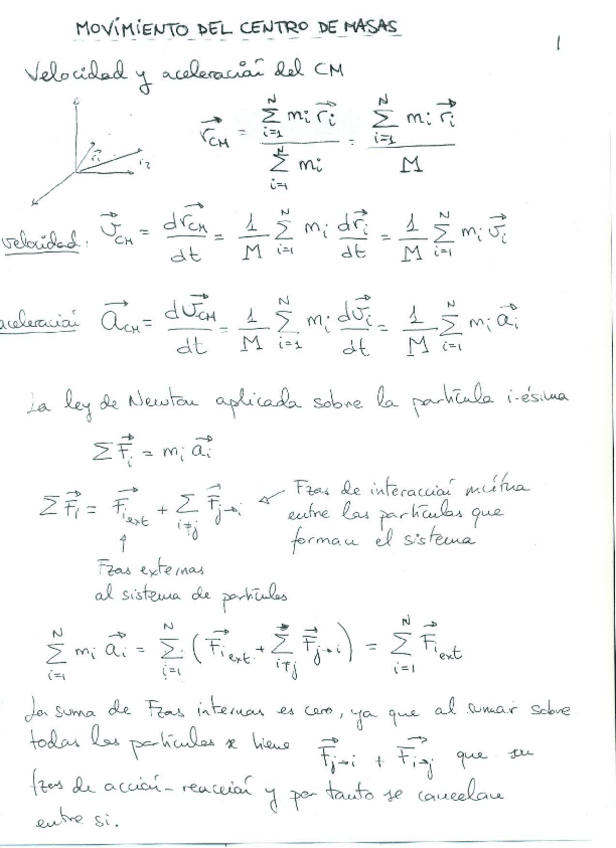 MOVIMIENTO DEL CENTRO DE MASAS
1
Velocidad y aceleración del CM
r⃗_CM = (Σ_{i=1}^{N} m_i r⃗_i) / (Σ_{i=1}^{N} m_i) = (Σ_{i=1}^{N} m_i r⃗_i) / M
velocidad: v⃗_CM = dr⃗_CM/dt = 1/M Σ_{i=1}^{N} m_i dr⃗_i/dt = 1/M Σ_{i=1}^{N} m_i v⃗_i
aceleración a⃗_CM = dv⃗_CM/dt = 1/M Σ_{i=1}^{N} m_i dv⃗_i/dt = 1/M Σ_{i=1}^{N} m_i a⃗_i
La ley de Newton aplicada sobre la partícula i-ésima
ΣF⃗_i = m_i a⃗_i
ΣF⃗_i = F⃗_{i ext} + Σ_{i≠j} F⃗_{j→i} ← Fzas de interacción mútua
entre las partículas que
forman el sistema
↑
Fzas externas
al sistema de partículas
Σ_{i=1}^{N} m_i a⃗_i = Σ_{i=1}^{N} (F⃗_{i ext} + Σ_{i≠j} F⃗_{j→i}) = Σ_{i=1}^{N} F⃗_{i ext}
La suma de Fzas internas es cero, ya que al sumar sobre
todas las partículas se tiene F⃗_{j→i} + F⃗_{i→j} que son
fzas de acción-reacción y por tanto se cancelan
entre si.